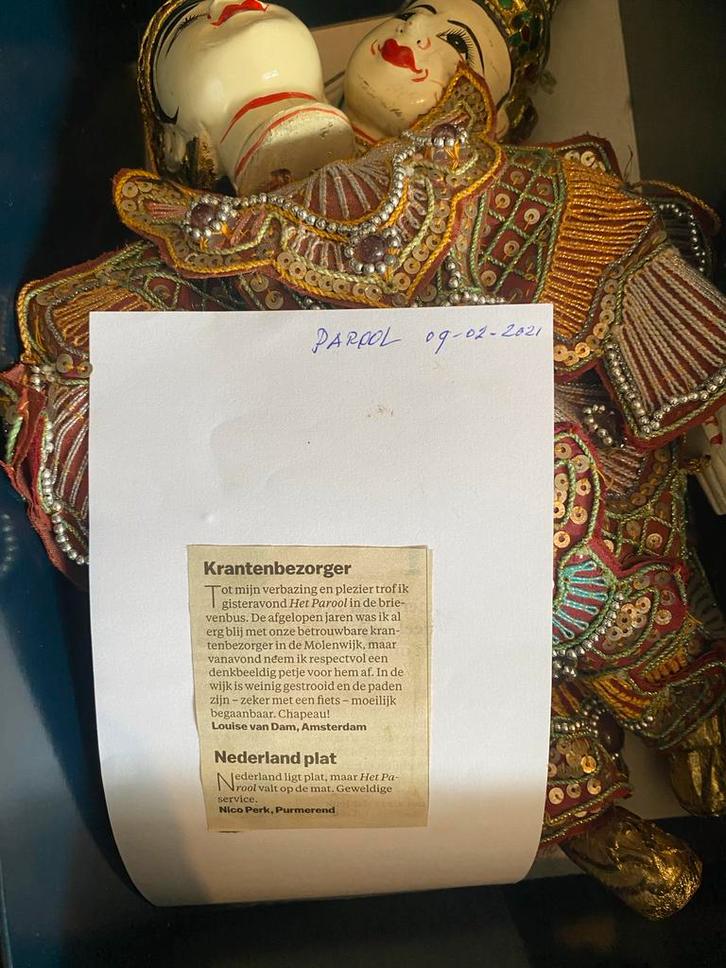 PAROOL 09-02-2021
Krantenbezorger
Tot mijn verbazing en plezier trof ik
gisteravond Het Parool in de brie-
venbus. De afgelopen jaren was ik al
erg blij met onze betrouwbare kran-
tenbezorger in de Molenwijk, maar
vanavond neem ik respectvol een
denkbeeldig petje voor hem af. In de
wijk is weinig gestrooid en de paden
zijn – zeker met een fiets – moeilijk
begaanbaar. Chapeau!
Louise van Dam, Amsterdam
Nederland plat
Nederland ligt plat, maar Het Pa-
rool valt op de mat. Geweldige
service.
Nico Perk, Purmerend